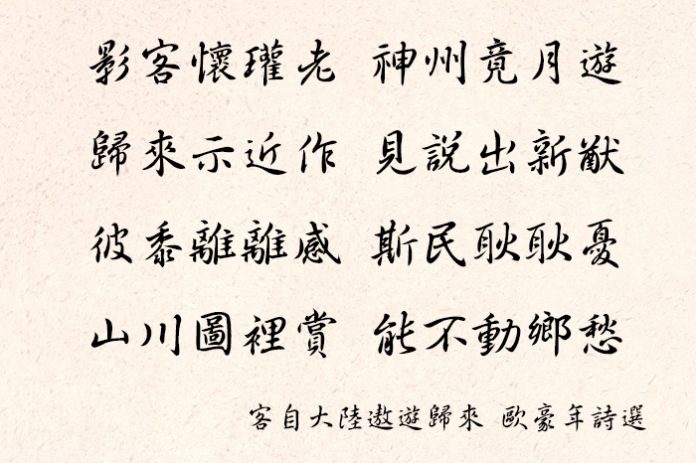 影客懷瓘老 神州竟月遊
歸來示近作 見說出新猷
彼黍離離感 斯民耿耿憂
山川圖裡賞 能不動鄉愁
客自大陸遨遊歸來 歐豪年詩選